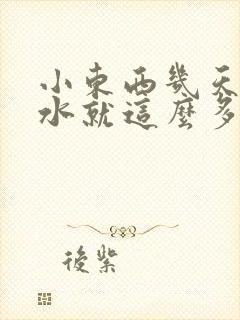 小東西幾天
水就這麼多
後紫